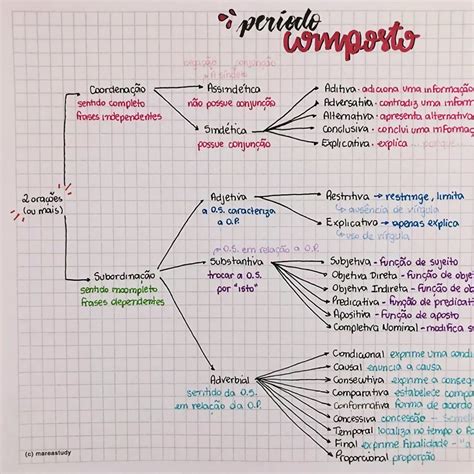 período
composto
Coordenação
sentido completo
frases independentes
Assindética
não possue conjunção
Sindética
possue conjunção
Aditiva - adiciona uma informação
Adversativa - contradiz uma inform
Alternativa - apresenta alternativa
Conclusiva - conclui uma informaç
Explicativa - explica
2 orações
(ou mais)
Subordinação
sentido incompleto
frases dependentes
Adjetiva
a O.S. caracteriza
a O.P.
Restritiva → restringe, limita
↳ ausência de vírgula
Explicativo → apenas explica
↳ uso de vírgula
↳ O.S. em relação a O.P.
Substantiva
trocar a O.S.
por "isto"
Subjetiva - função de sujeito
Objetiva Direta - função de ob
Objetiva Indireta - função de ob
Predicativa - função de predicati
Apositiva - função de aposto
Completiva Nominal - modifica s
Adverbial
sentido da O.S.
em relação da O.P.
Condicional exprime uma condi
Causal enuncia a causa
Consecutiva exprime a conseq
Comparativa estabelece compa
Conformativa forma de acord
Concessiva concessão -
Temporal localiza no tempo o f
Final exprime finalidade - "a
Proporcional proporção
(c) mareastudy